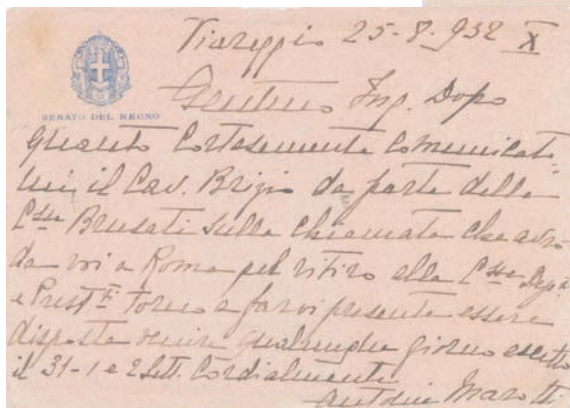 Viareggio 25-8-932 X
SENATO DEL REGNO
Ing. Dopo
quanto cortesemente comunicato
mi il Cav. Brizio da parte della
C.ssa Brusati sulla chiamata che avrò
da voi a Roma pel ritiro alla C.ssa Dep.ti
e Prest.i torno a farvi presente essere
disposto venire qualunque giorno eccetto
il 31-1 e 2 Sett. Cordialmente
Marotti